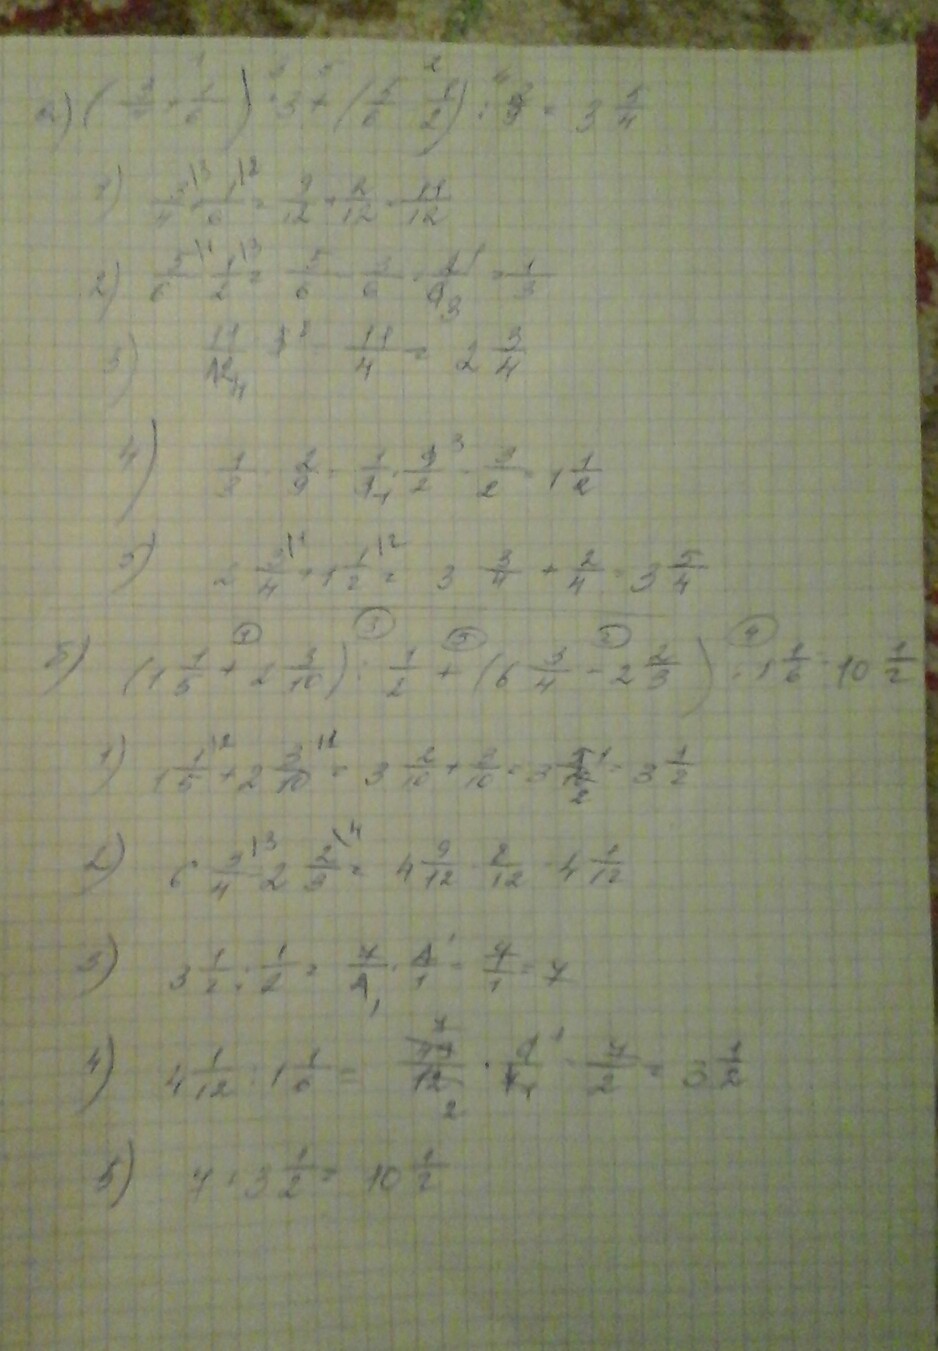 а) (3/4 + 1/6) · 3 + (5/6 - 1/2) : 2/9 = 3 5/4
1) 3/4 + 1/6 = 9/12 + 2/12 = 11/12
2) 5/6 - 1/2 = 5/6 - 3/6 = 2/6 = 1/3
3) 11/12 · 3 = 11/4 = 2 3/4
4) 1/3 : 2/9 = 1/3 · 9/2 = 3/2 = 1 1/2
5) 2 3/4 + 1 1/2 = 3 3/4 + 2/4 = 3 5/4
б) (1 1/5 + 2 3/10) : 1/2 + (6 3/4 - 2 2/3) : 1 1/6 = 10 1/2
1) 1 1/5 + 2 3/10 = 3 2/10 + 3/10 = 3 5/10 = 3 1/2
2) 6 3/4 - 2 2/3 = 4 9/12 - 8/12 = 4 1/12
3) 3 1/2 : 1/2 = 7/2 · 2/1 = 7/1 = 7
4) 4 1/12 : 1 1/6 = 49/12 · 6/7 = 7/2 = 3 1/2
5) 7 + 3 1/2 = 10 1/2